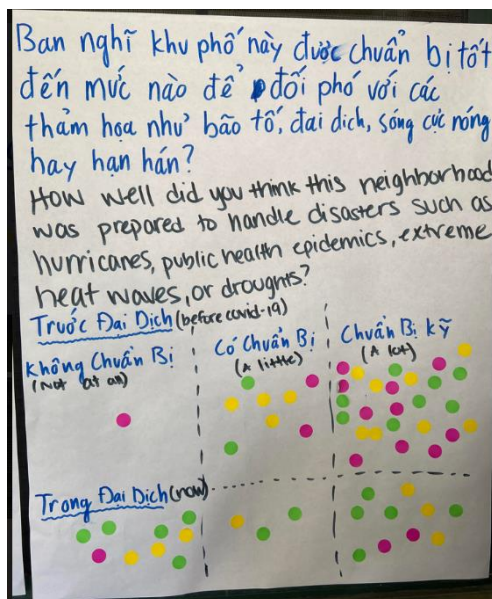 Bạn nghĩ khu phố này được chuẩn bị tốt
đến mức nào để đối phó với các
thảm họa như bão tố, đại dịch, sóng cực nóng
hay hạn hán?
How well did you think this neighborhood
was prepared to handle disasters such as
hurricanes, public health epidemics, extreme
heat waves, or droughts?
Trước Đại Dịch (before covid-19)
Không Chuẩn Bị
(Not at all)
Có Chuẩn Bị
(A little)
Chuẩn Bị kỹ
(A lot)
Trong Đại Dịch (now)